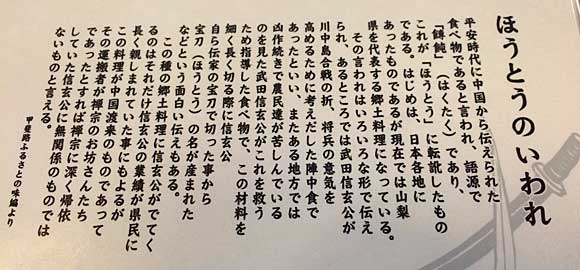 ほうとうのいわれ
平安時代に中国から伝えられた
食べ物であると言われ、語源で
「餺飥」(はくたく)であり、
これが「ほうとう」に転訛したもの
である。はじめは、日本各地に
あったものであるが現在では山梨
県を代表する郷土料理になっている。
その言われはいろいろな形で伝え
られ、あるところでは武田信玄公が
川中島合戦の折、将兵の意気を
高めるために考えだした陣中食で
あったといい、またある地方では
凶作続きで農民達が苦しんでいる
のを見た武田信玄公がこれを救う
ため指導した食べ物で、この材料を
細く長く切る際に信玄公
自ら伝家の宝刀で切った事から
宝刀(ほうとう)の名が産まれた
などという面白い伝えもある。
この種の郷土料理に信玄公がでてく
るのはそれだけ信玄公の業績が県民に
長く親しまれていた事にもよるが
この料理が中国渡来のものであって
その運搬者が禅宗のお坊さんたち
であったとすれば禅宗に深く帰依
していた信玄公に無関係のものでは
ないものと言える。
甲斐路ふるさとの味綸より